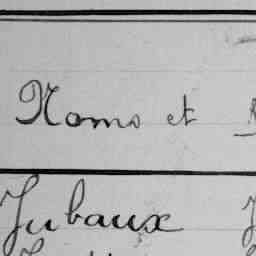 Noms et
Jubaux